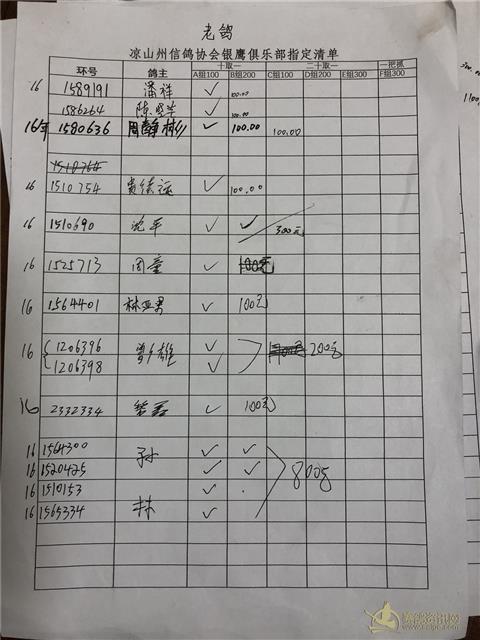 老鸽
凉山州信鸽协会银鹰俱乐部指定清单
环号 鸽主 十取一 二十取一 一把抓
A组100 B组200 C组100 D组200 E组300 F组300
16 1589191 潘祥 ✓ 100.00
1586264 陈 ✓ 100.00
16年 1580636 周 彬 ✓ 100.00 100.00
16 1510754 ✓ 100.00
16 1510690 沈军 ✓ ✓ 300元
16 1525713 周童 ✓ 100元
16 1564401 林亚男 ✓ 100元
16 1206396 雄 ✓ 200元
1206398 ✓
16 2332334 ✓ 100元
16 1564300 孙 ✓ ✓
16 1520425 ✓ ✓ 800元
16 1510153 ✓
16 1565334 林 ✓